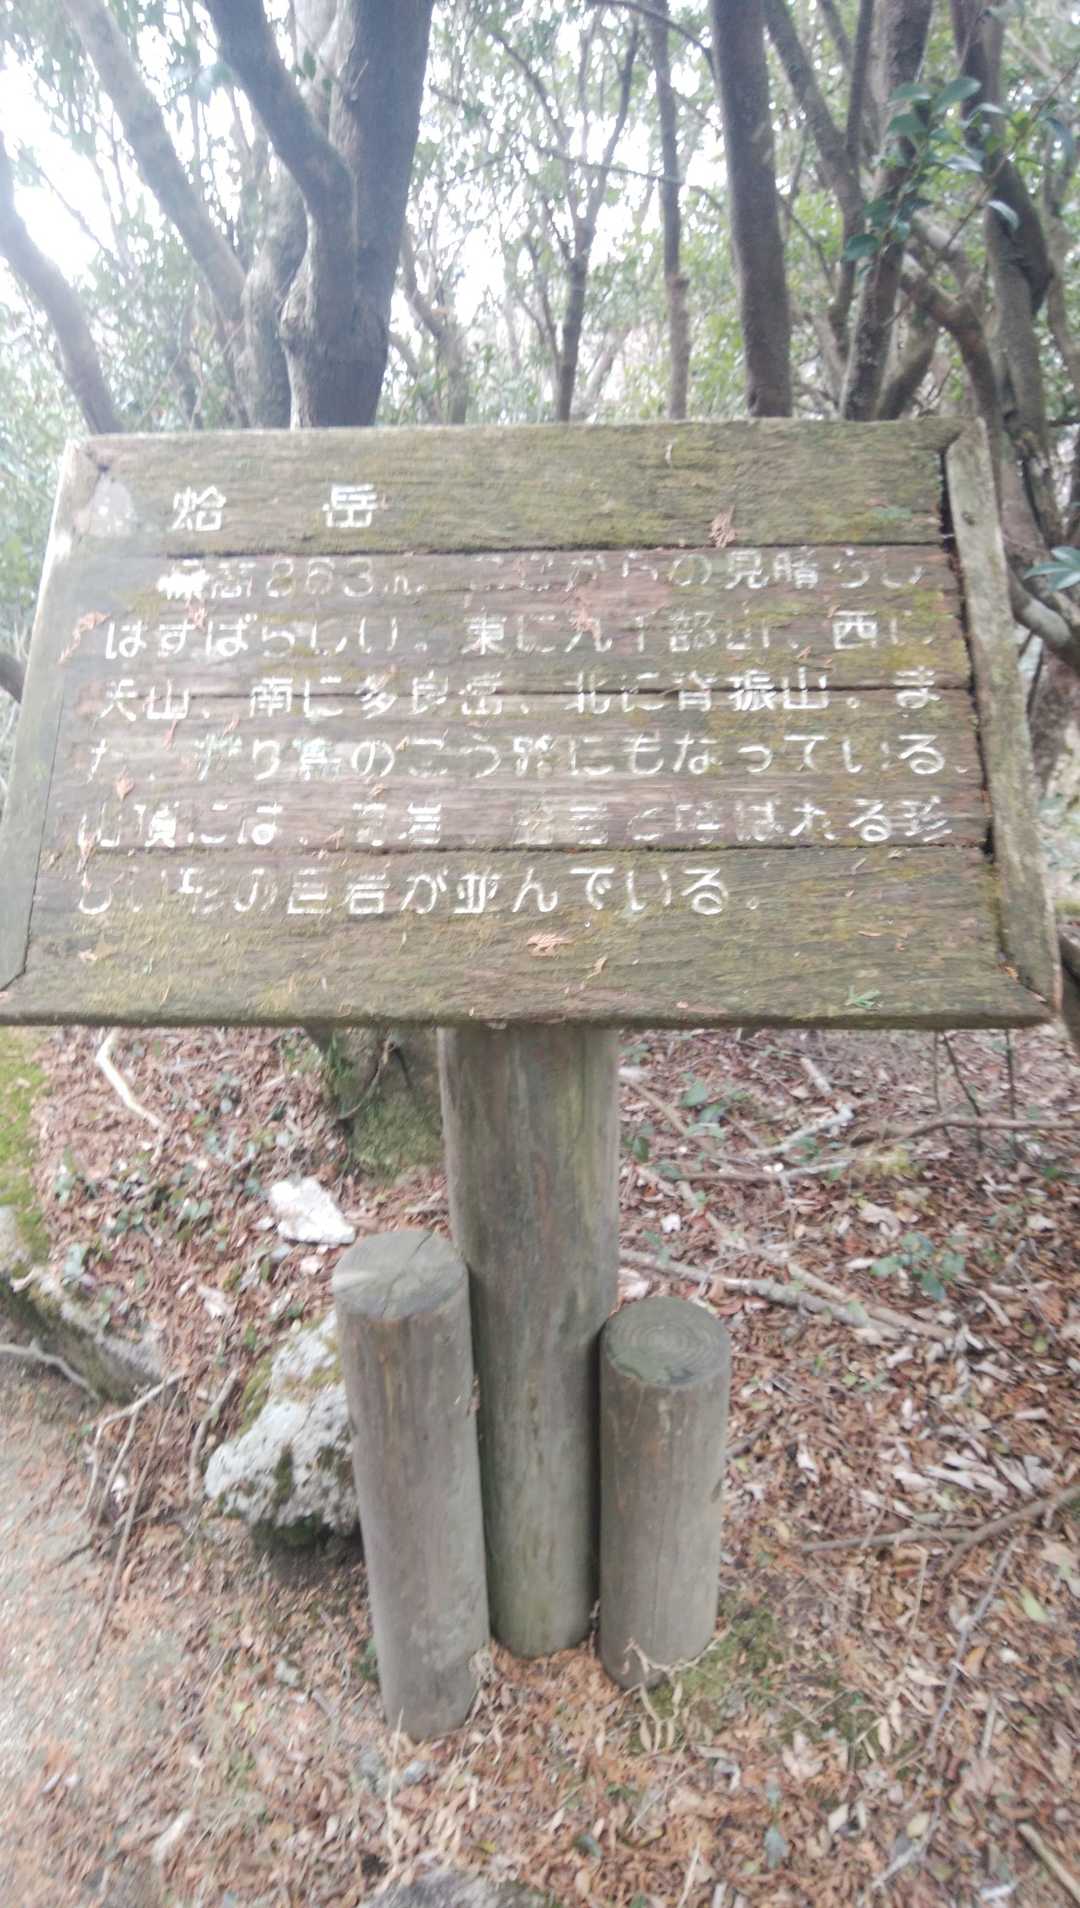 蛤 岳
標高863m。ここからの見晴らし
はすばらしい。東に九千部山、西に
天山、南に多良岳、北に背振山。ま
た、渡り鳥のこう路にもなっている。
山頂には、と呼ばれる珍
しい形の巨岩が並んでいる。